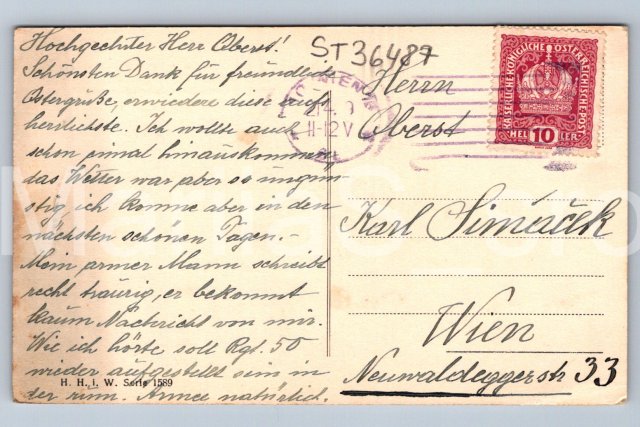 Hochgeehrter Herr Oberst!
Schönsten Dank für freundliche
Ostergrüße, erwiedere diese aufs
herzlichste. Ich wollte auch
schon einmal hinauskommen
das Wetter war aber so ungün-
stig, ich komme aber in den
nächsten schönen Tagen.-
Mein armer Mann schreibt
recht traurig, er bekommt
kaum Nachricht von mir.
Wie ich hörte soll Rgt. 50
wieder aufgestellt sein in
der rum. Armee natürlich.
H. H. i. W. Serie 1589
ST36487
WIEN
11-12V
KAISERLICHE KÖNIGLICHE ÖSTERREICHISCHE POST
HELLER
10
Herrn
Oberst
Karl Simáček
Wien
Neuwaldeggerstr 33